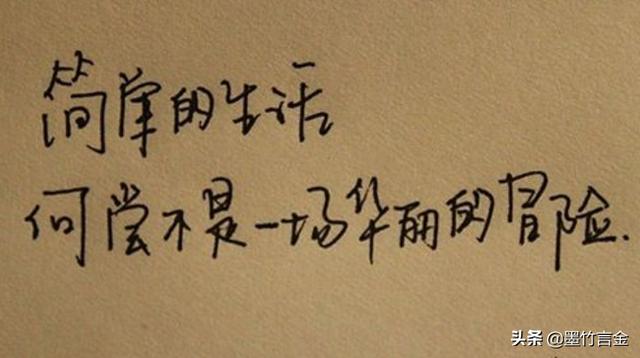 简单的生活
何尝不是一场华丽的冒险.
头条 @墨竹言金